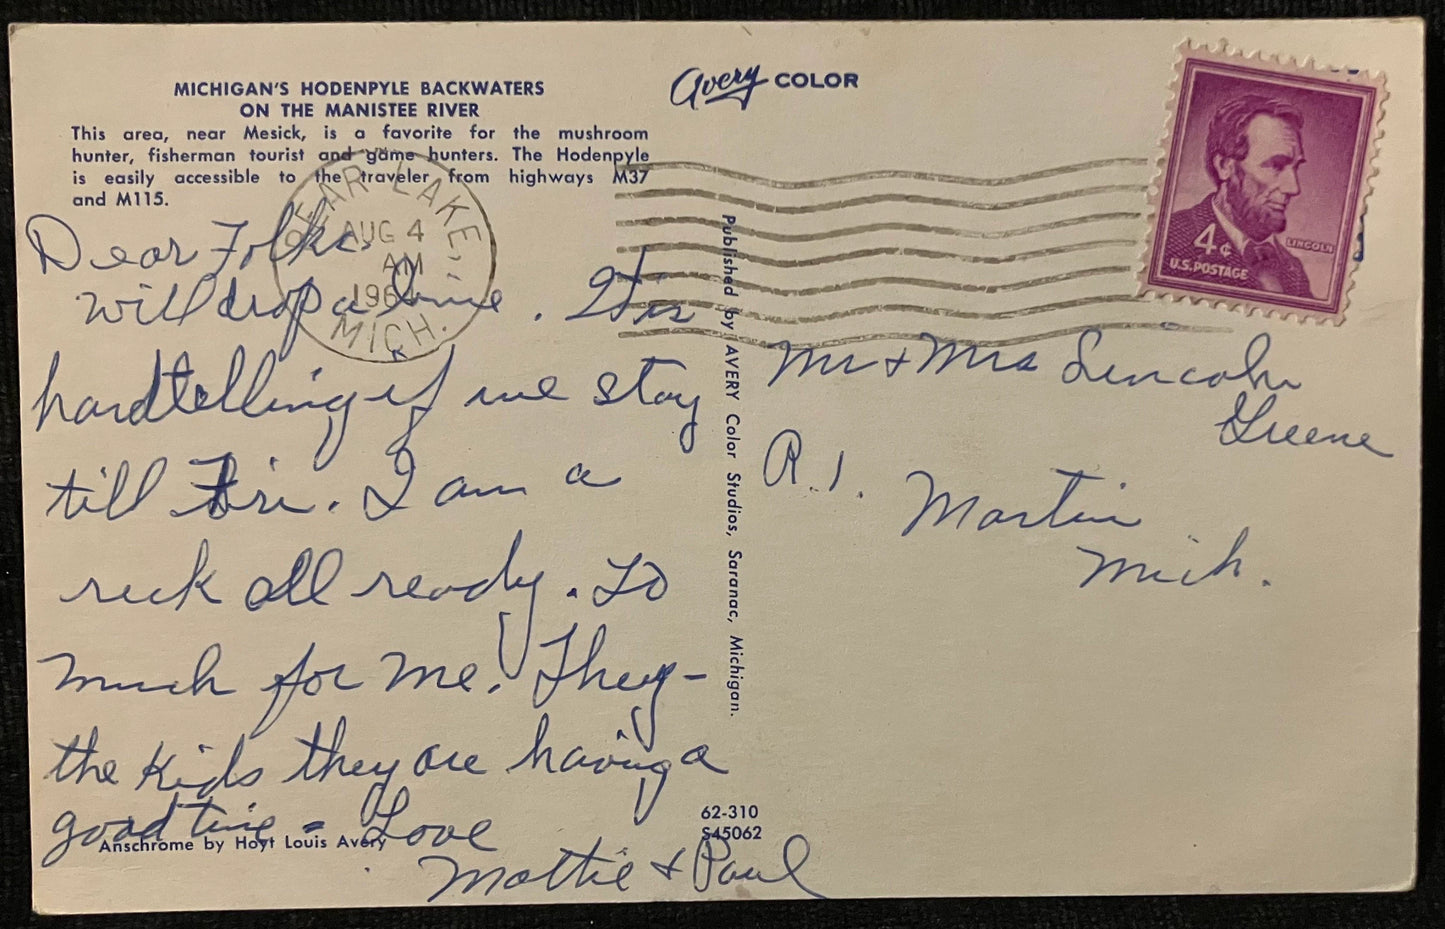 MICHIGAN'S HODENPYLE BACKWATERS
ON THE MANISTEE RIVER
This area, near Mesick, is a favorite for the mushroom
hunter, fisherman tourist and game hunters. The Hodenpyle
is easily accessible to the traveler from highways M37
and M115.
Avery COLOR
BEAR LAKE,
AUG 4
AM
MICH.
4¢
LINCOLN
U.S. POSTAGE
Dear Folks.
will drop a line. Its
hard telling if we stay
till Fri. I am a
reck all ready. To
much for me. They-
the kids they are having a
good time = Love
Mattie & Paul
Published by AVERY Color Studios, Saranac, Michigan.
Mr & Mrs Lincoln
Greene
R. 1.
Martin
Mich.
Anschrome by Hoyt Louis Avery
62-310
S45062